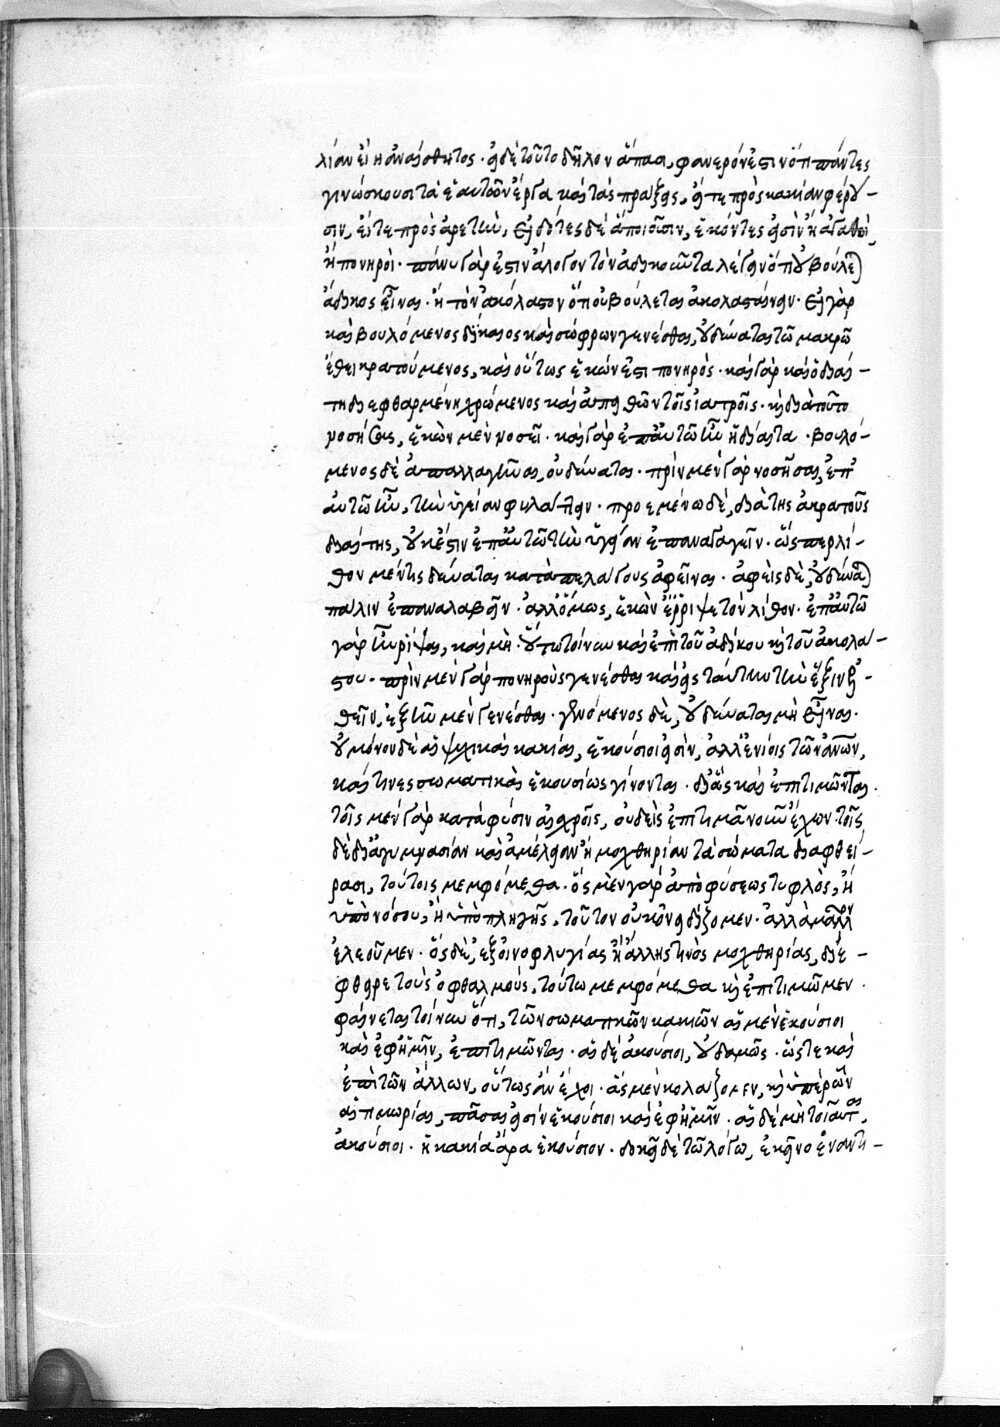 λίαν εἴη ἀναίσθητος· εἰ δὲ τοῦτο δῆλον ἅπασι, φανερόν ἐστιν ὅτι πάντες
γινώσκουσι τὰ ἑαυτῶν ἔργα καὶ τὰς πράξεις, εἴτε πρὸς κακίαν φέρου-
σιν, εἴτε πρὸς ἀρετὴν, εἰδότες δὲ ἃ ποιοῦσιν, ἑκόντες εἰσὶν ἢ ἀγαθοὶ,
ἢ πονηροί· πάνυ γὰρ ἐστιν ἄλογον τὸν ἀδικοῦντα λέγειν ὅτι οὐ βούλεται
ἄδικος εἶναι· ἢ τὸν ἀκόλαστον ὅτι οὐ βούλεται ἀκολασταίνειν· εἰ γὰρ
καὶ βουλόμενος δίκαιος καὶ σώφρων γενέσθαι, οὐ δύναται τῷ μακρῷ
ἔθει κρατούμενος, καὶ οὕτως ἑκών ἐστι πονηρὸς· καὶ γὰρ καὶ ὁ διαί-
τῃ διεφθαρμένῃ χρώμενος καὶ ἀπειθῶν τοῖς ἰατροῖς· καὶ διὰ τοῦτο
νοσήσας, ἑκὼν μὲν νοσεῖ· καὶ γὰρ ἐπ' αὐτῷ ἦν ἡ δίαιτα· βουλό-
μενος δὲ ἀπαλλαγῆναι, οὐ δύναται· πρὶν μὲν γὰρ νοσῆσαι, ἐπ'
αὐτῷ ἦν, τὴν ὑγείαν φυλάττειν· προεμένῳ δὲ, διὰ τῆς ἀκρατοῦς
διαίτης, οὐκ ἔστιν ἐπ' αὐτῷ τὴν ὑγείαν ἐπαναγαγεῖν· ὥσπερ λί-
θον μέν τις δύναται κατὰ πελάγους ἀφεῖναι· ἀφεὶς δὲ, οὐ δύναται
πάλιν ἐπαναλαβεῖν· ἀλλ' ὅμως, ἑκὼν ἔρριψε τὸν λίθον· ἐπ' αὐτῷ
γὰρ ἦν ῥίψαι, καὶ μὴ· οὕτω τοίνυν καὶ ἐπὶ τοῦ ἀδίκου καὶ τοῦ ἀκολά-
στου· πρὶν μὲν γὰρ πονηροὺς γενέσθαι καὶ εἰς ταύτην τὴν ἕξιν ἐλ-
θεῖν, ἐξῆν μὲν γενέσθαι· γενόμενος δὲ, οὐ δύναται μὴ εἶναι·
οὐ μόνον δὲ αἱ ψυχικαὶ κακίαι, ἑκούσιοι εἰσὶν, ἀλλ' ἐνίοις τῶν ἀνθρώπων,
καί τινες σωματικαὶ ἑκουσίως γίνονται· δι' ἃς καὶ ἐπιτιμῶνται·
τοῖς μὲν γὰρ κατὰ φύσιν αἰσχροῖς, οὐδεὶς ἐπιτιμᾷ νοῦν ἔχων· τοῖς
δὲ δι' ἀγυμνασίαν καὶ ἀμέλειαν ἢ μοχθηρίαν τὰ σώματα διαφθεί-
ρασι, τούτοις μεμφόμεθα· ὃς μὲν γὰρ ἀπὸ φύσεως τυφλὸς, ἢ
ὑπὸ νόσου, ἢ ὑπὸ πληγῆς, τοῦτον οὐκ ὀνειδίζομεν· ἀλλὰ μᾶλλον
ἐλεοῦμεν· ὃς δὲ, ἐξ οἰνοφλυγίας ἢ ἄλλης τινὸς μοχθηρίας, διέ-
φθειρε τοὺς ὀφθαλμούς, τούτῳ μεμφόμεθα καὶ ἐπιτιμῶμεν·
φαίνεται τοίνυν ὅτι, τῶν σωματικῶν κακιῶν αἱ μὲν ἑκούσιοι
καὶ ἐφ' ἡμῖν, ἐπιτιμῶνται· αἱ δὲ ἀκούσιοι, οὐδαμῶς· ὥστε καὶ
ἐπὶ τῶν ἄλλων, οὕτως ἂν ἔχοι· ἃς μὲν κολάζομεν, καὶ ὑπὲρ ὧν
αἱ τιμωρίαι, πᾶσαι εἰσὶν ἑκούσιοι καὶ ἐφ' ἡμῖν· αἱ δὲ μὴ τοιαῦται,
ἀκούσιοι· ἡ κακία ἄρα ἑκούσιον· δοκεῖ δὲ τῷ λόγῳ, ἐκεῖνο ἐναντι-